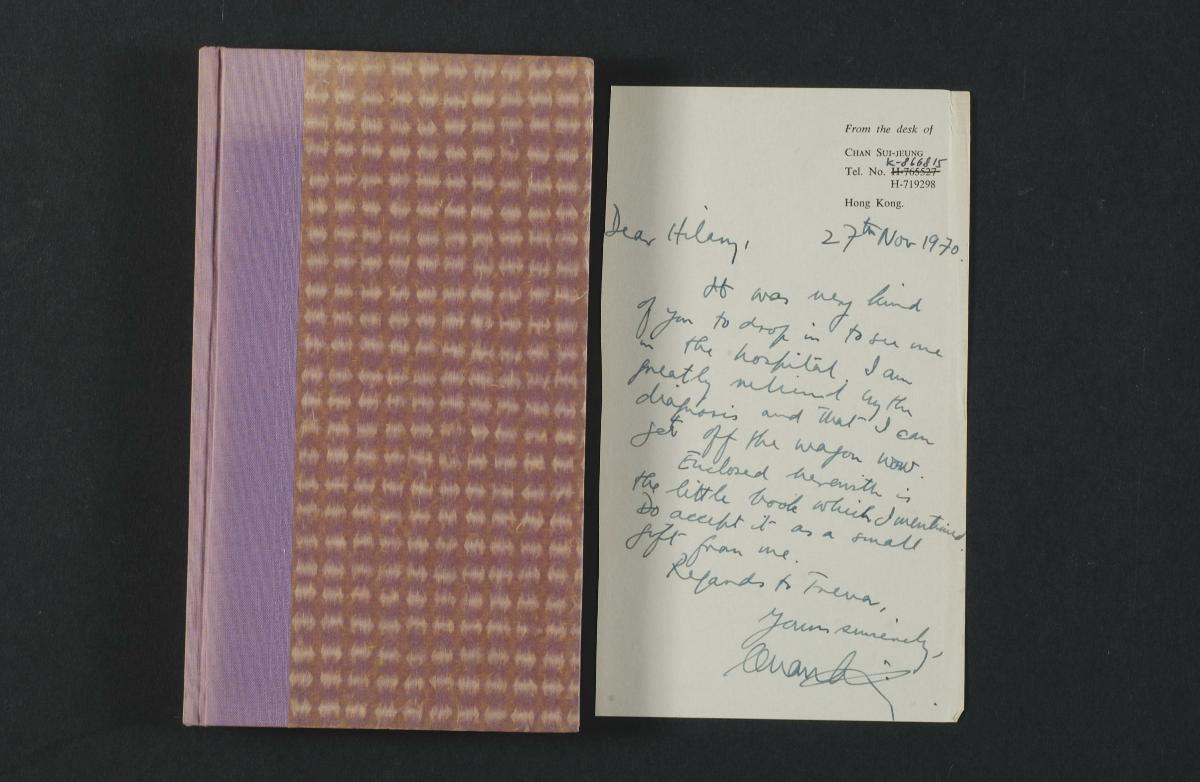 From the desk of
CHAN SUI-JEUNG
K-866815
Tel. No. H-765527
H-719298
Hong Kong.
Dear Hilary, 27th Nov 1970.
It was very kind
of you to drop in to see me
in the hospital. I am
greatly relieved by the
diagnosis and that I can
get off the wagon now.
Enclosed herewith is
the little book which I mentioned.
Do accept it as a small
gift from me.
Regards to Trevor,
Yours sincerely,